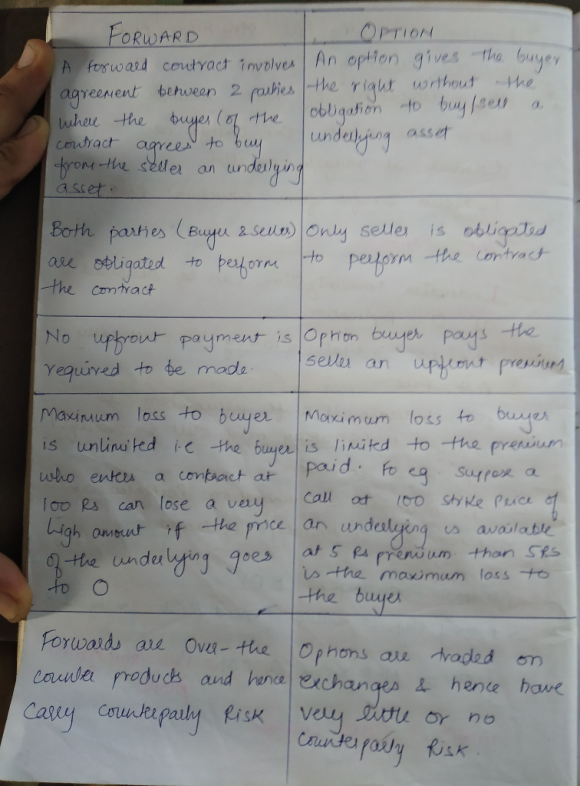 FORWARD
A forward contract involves
agreement between 2 parties
where the buyer (of the
contract agrees to buy
from the seller an underlying
asset.
OPTION
An option gives the buyer
the right without the
obligation to buy/sell a
underlying asset
Both parties (Buyer & seller)
are obligated to perform
the contract
Only seller is obligated
to perform the contract
No upfront payment is
required to be made.
Option buyer pays the
seller an upfront premium
Maximum loss to buyer
is unlimited i.e the buyer
who enters a contract at
100 Rs can lose a very
high amount if the price
of the underlying goes
to 0
Maximum loss to buyer
is limited to the premium
paid. Fo eg. suppose a
call at 100 strike price of
an underlying is available
at 5 Rs premium than 5RS
is the maximum loss to
the buyer
Forwards are Over-the
counter products and hence
Carry Counterparty Risk
Options are traded on
exchanges & hence have
very little or no
Counterparty Risk.